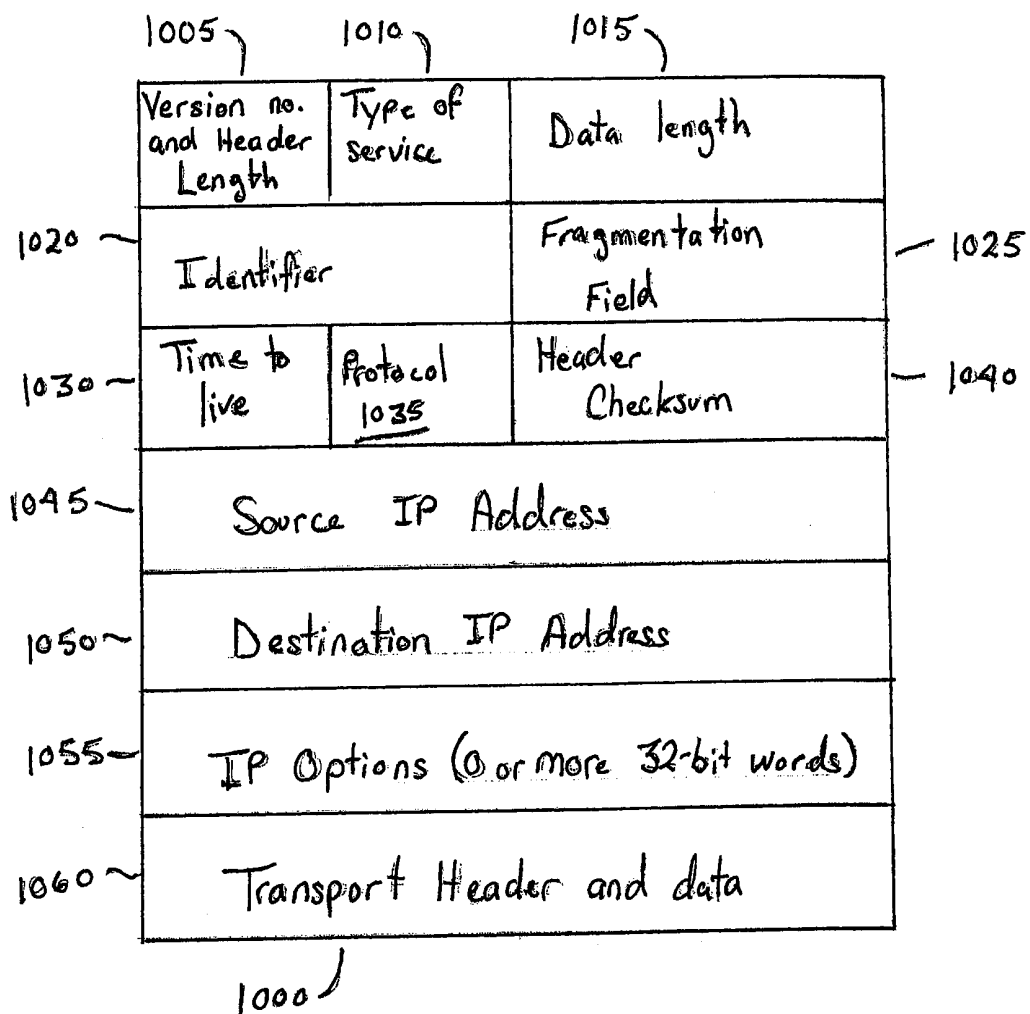 1005 1010 1015
Version no. and Header Length
Type of service
Data length
1020
Identifier
Fragmentation Field
1025
1030
Time to live
Protocol 1035
Header Checksum
1040
1045
Source IP Address
1050
Destination IP Address
1055
IP Options (0 or more 32-bit words)
1060
Transport Header and data
1000